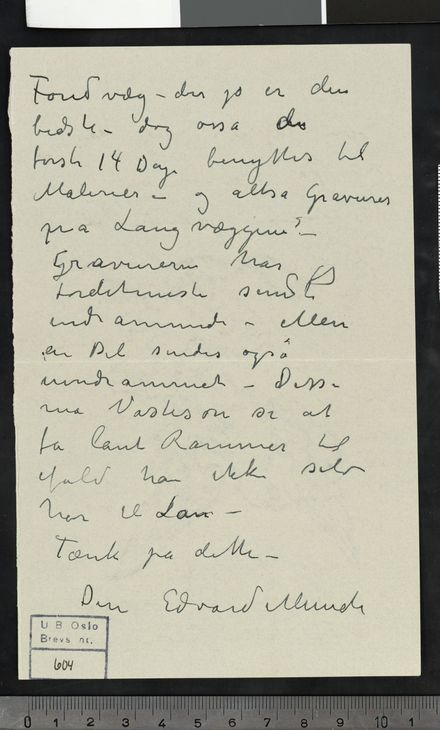 Fondvæg – der jo er den
bedste – dog ossa de
første 14 Dage benyttes til
Malerier – og altsa Gravures
pra Langvæggene? –
Gravurerne har jeg
fordetmeste sendt
indrammede – Men
en Del sendes også
uindrammet – Disse
ma se at
fa laant Rammer til
ifald han ikke selv
har til Laan –
Tænk pa dette –
Din Edvard Munch
U B Oslo
Brevs. nr.
604
0 1 2 3 4 5 6 7 8 9 10 1